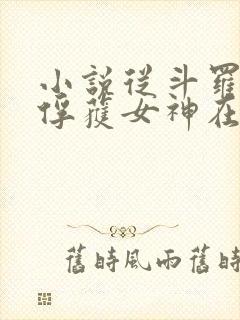 小說從斗羅
俘獲女神在
舊時風雨舊時